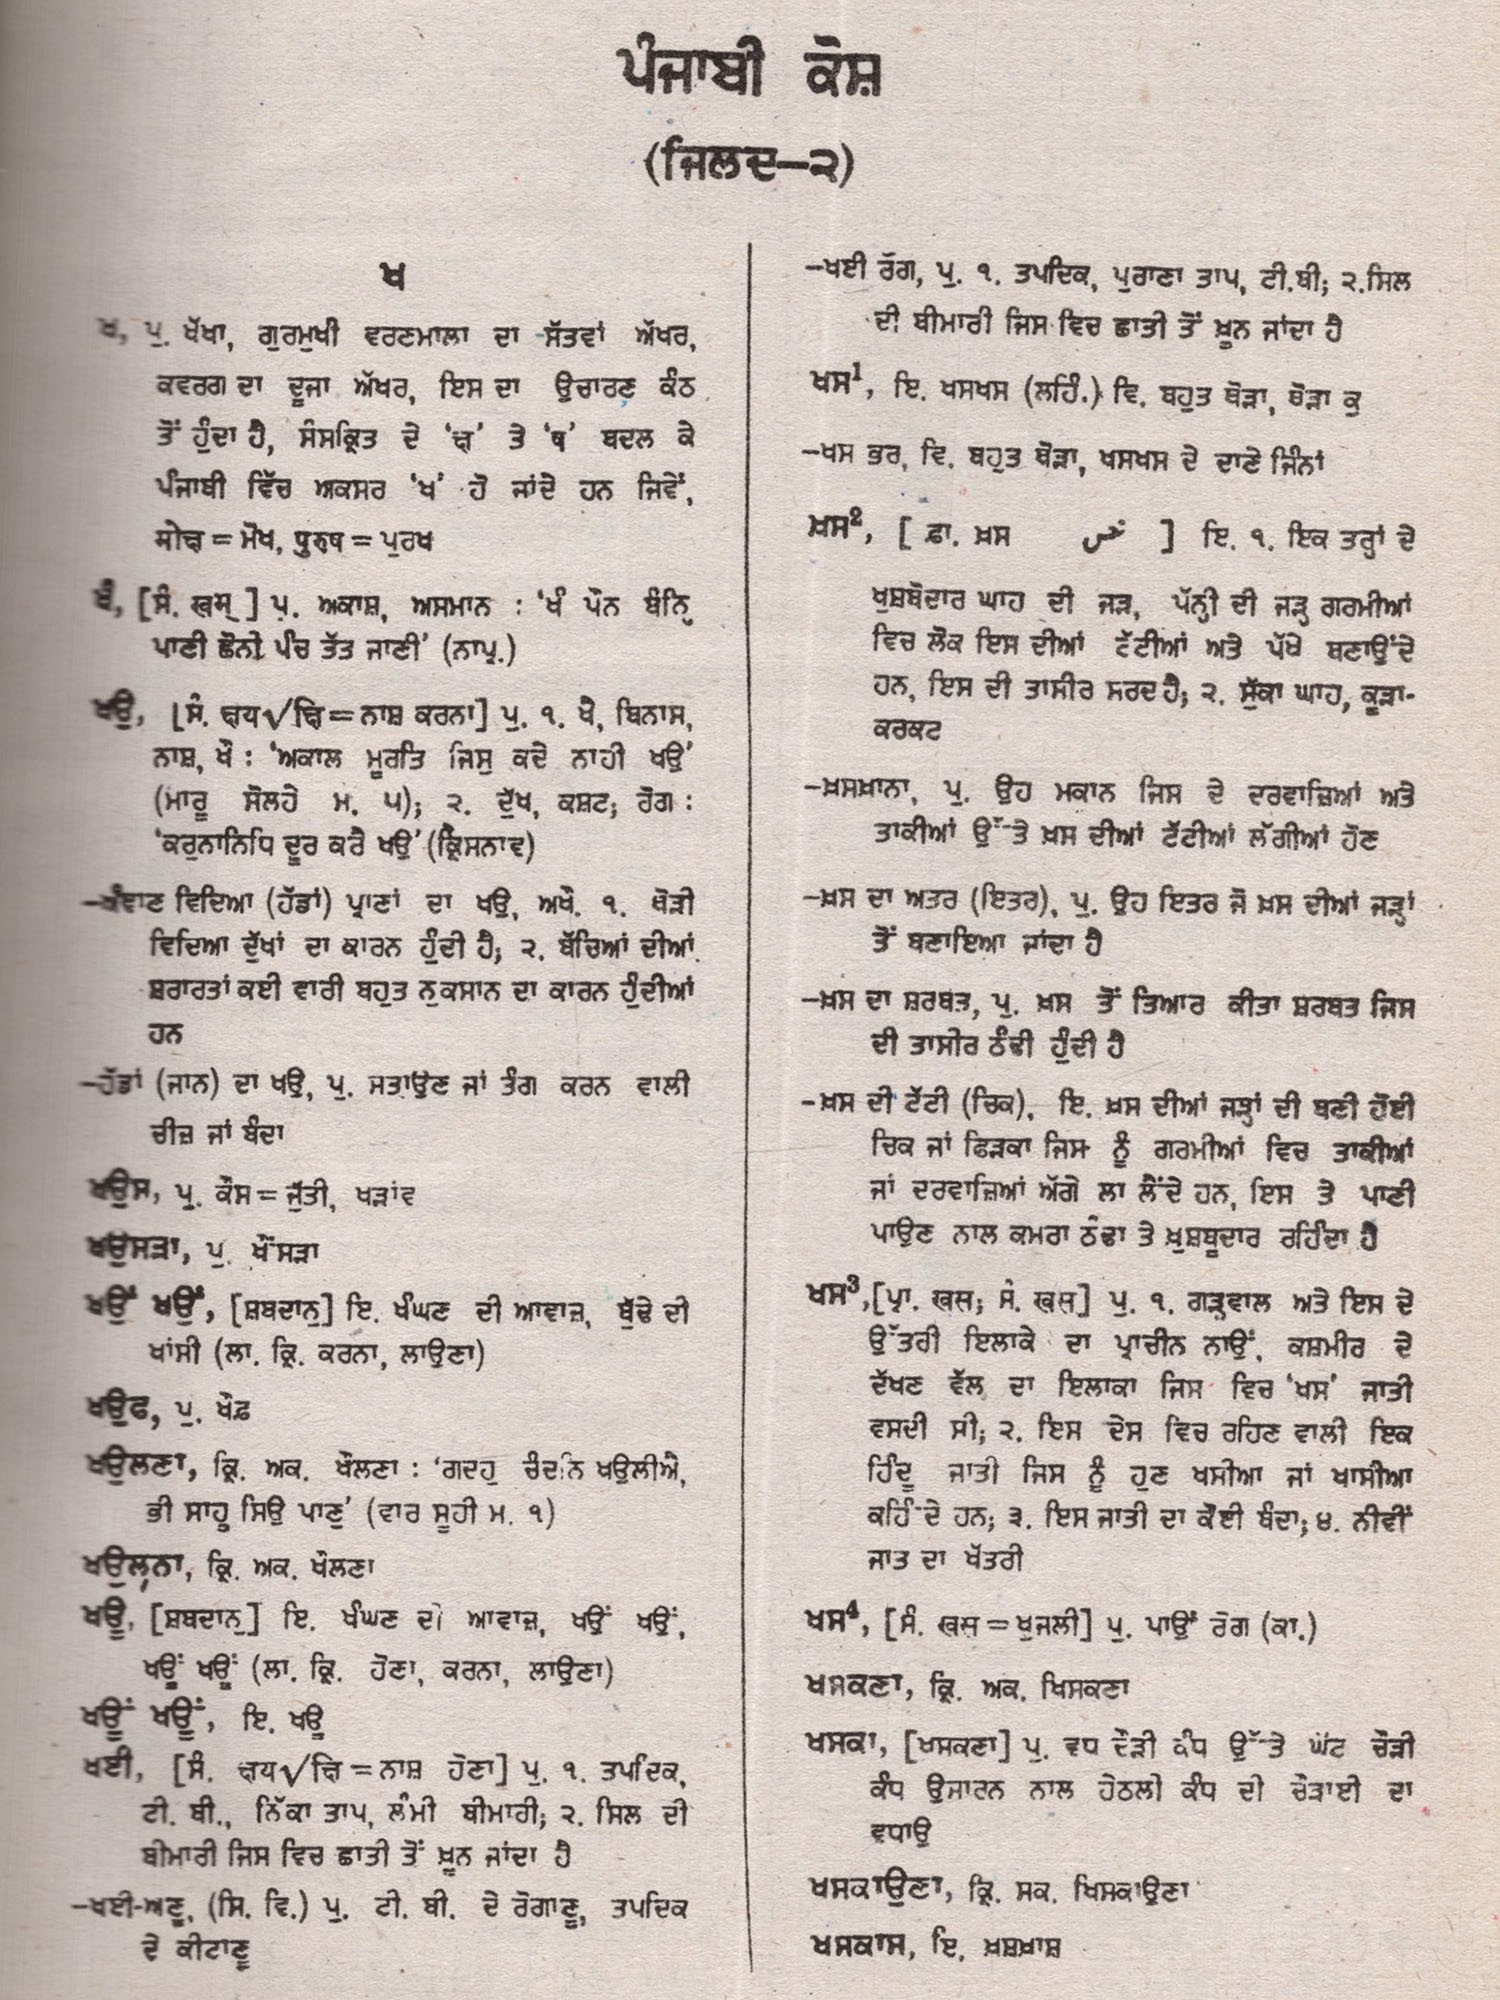 ਪੰਜਾਬੀ ਕੋਸ਼
(ਜਿਲਦ–੨)
ਖ
ਖ, ਪੁ. ਖੱਖਾ, ਗੁਰਮੁਖੀ ਵਰਣਮਾਲਾ ਦਾ ਸੱਤਵਾਂ ਅੱਖਰ,
ਕਵਰਗ ਦਾ ਦੂਜਾ ਅੱਖਰ, ਇਸ ਦਾ ਉਚਾਰਣ ਕੰਠ
ਤੋਂ ਹੁੰਦਾ ਹੈ, ਸੰਸਕ੍ਰਿਤ ਦੇ ‘क्ष’ ਤੇ ‘ष’ ਬਦਲ ਕੇ
ਪੰਜਾਬੀ ਵਿੱਚ ਅਕਸਰ ‘ਖ’ ਹੋ ਜਾਂਦੇ ਹਨ ਜਿਵੇਂ,
मोक्ष = ਮੋਖ, पुरुष = ਪੁਰਖ
ਖੰ, [ਸੰ. खम् ] ਪੁ. ਅਕਾਸ਼, ਅਸਮਾਨ : ‘ਖੰ ਪੌਨ ਬੰਨਿ੍ਹ
ਪਾਣੀ ਛੋਨੀ ਪੰਚ ਤੱਤ ਜਾਣੀ’ (ਨਾਪ੍ਰ.)
ਖਉ, [ਸੰ. क्षय√क्षि = ਨਾਸ਼ ਕਰਨਾ] ਪੁ. ੧. ਖੈ, ਬਿਨਾਸ,
ਨਾਸ਼, ਖੌ : ‘ਅਕਾਲ ਮੂਰਤਿ ਜਿਸੁ ਕਦੇ ਨਾਹੀ ਖਉ’
(ਮਾਰੂ ਸੋਲਹੇ ਮ. ੫); ੨. ਦੁੱਖ, ਕਸ਼ਟ; ਰੋਗ :
‘ਕਰੁਨਾਨਿਧਿ ਦੂਰ ਕਰੈ ਖਉ’ (ਕ੍ਰਿਸਨਾਵ)
–ਖੰਵਾਣ ਵਿਦਿਆ (ਹੱਡਾਂ) ਪ੍ਰਾਣਾਂ ਦਾ ਖਉ, ਅਖੌ. ੧. ਥੋੜੀ
ਵਿਦਿਆ ਦੁੱਖਾਂ ਦਾ ਕਾਰਨ ਹੁੰਦੀ ਹੈ; ੨. ਬੱਚਿਆਂ ਦੀਆਂ
ਸ਼ਰਾਰਤਾਂ ਕਈ ਵਾਰੀ ਬਹੁਤ ਨੁਕਸਾਨ ਦਾ ਕਾਰਨ ਹੁੰਦੀਆਂ
ਹਨ
–ਹੱਡਾਂ (ਜਾਨ) ਦਾ ਖਉ, ਪੁ. ਸਤਾਉਣ ਜਾਂ ਤੰਗ ਕਰਨ ਵਾਲੀ
ਚੀਜ਼ ਜਾਂ ਬੰਦਾ
ਖਉਸ, ਪੁ. ਕੌਸ = ਜੁੱਤੀ, ਖੜਾਂਵ
ਖਉਸੜਾ, ਪੁ. ਖੌਂਸੜਾ
ਖਉਂ ਖਉਂ, [ਸ਼ਬਦਾਨੁ] ਇ. ਖੰਘਣ ਦੀ ਆਵਾਜ਼, ਬੁੱਢੇ ਦੀ
ਖਾਂਸੀ (ਲਾ. ਕ੍ਰਿ. ਕਰਨਾ, ਲਾਉਣਾ)
ਖਉਫ, ਪੁ. ਖੌਫ਼
ਖਉਲਣਾ, ਕ੍ਰਿ. ਅਕ. ਖੌਲਣਾ : ‘ਗਦਹੁ ਚੰਦਨਿ ਖਉਲੀਐ,
ਭੀ ਸਾਹੂ ਸਿਉ ਪਾਣੁ’ (ਵਾਰ ਸੂਹੀ ਮ. ੧)
ਖਉਲ੍ਹਨਾ, ਕ੍ਰਿ. ਅਕ. ਖੌਲਣਾ
ਖਊ, [ਸ਼ਬਦਾਨੁ] ਇ. ਖੰਘਣ ਦੀ ਆਵਾਜ਼, ਖਉਂ ਖਉਂ,
ਖਊਂ ਖਊਂ (ਲਾ. ਕ੍ਰਿ. ਹੋਣਾ, ਕਰਨਾ, ਲਾਉਣਾ)
ਖਊਂ ਖਊਂ, ਇ. ਖਊ
ਖਈ, [ਸੰ. क्षय√क्षि = ਨਾਸ਼ ਹੋਣਾ] ਪੁ. ੧. ਤਪਦਿਕ,
ਟੀ. ਬੀ., ਨਿੱਕਾ ਤਾਪ, ਲੰਮੀ ਬੀਮਾਰੀ; ੨. ਸਿਲ ਦੀ
ਬੀਮਾਰੀ ਜਿਸ ਵਿਚ ਛਾਤੀ ਤੋਂ ਖ਼ੂਨ ਜਾਂਦਾ ਹੈ
–ਖਈ-ਅਣੂ, (ਸਿ. ਵਿ.) ਪੁ. ਟੀ. ਬੀ. ਦੇ ਰੋਗਾਣੂ, ਤਪਦਿਕ
ਦੇ ਕੀਟਾਣੂ
–ਖਈ ਰੋਗ, ਪੁ. ੧. ਤਪਦਿਕ, ਪੁਰਾਣਾ ਤਾਪ, ਟੀ.ਬੀ; ੨.ਸਿਲ
ਦੀ ਬੀਮਾਰੀ ਜਿਸ ਵਿਚ ਛਾਤੀ ਤੋਂ ਖ਼ੂਨ ਜਾਂਦਾ ਹੈ
ਖਸ¹, ਇ. ਖਸਖਸ (ਲਹਿੰ.) ਵਿ. ਬਹੁਤ ਥੋੜਾ, ਥੋੜਾ ਕੁ
–ਖਸ ਭਰ, ਵਿ. ਬਹੁਤ ਥੋੜਾ, ਖਸਖਸ ਦੇ ਦਾਣੇ ਜਿੰਨਾਂ
ਖ਼ਸ², [ ਫ਼ਾ. ਖ਼ਸ خس ] ਇ. ੧. ਇਕ ਤਰ੍ਹਾਂ ਦੇ
ਖੁਸ਼ਬੋਦਾਰ ਘਾਹ ਦੀ ਜੜ, ਪੰਨ੍ਹੀ ਦੀ ਜੜ੍ਹ ਗਰਮੀਆਂ
ਵਿਚ ਲੋਕ ਇਸ ਦੀਆਂ ਟੱਟੀਆਂ ਅਤੇ ਪੱਖੇ ਬਣਾਉਂਦੇ
ਹਨ, ਇਸ ਦੀ ਤਾਸੀਰ ਸਰਦ ਹੈ; ੨. ਸੁੱਕਾ ਘਾਹ, ਕੂੜਾ-
ਕਰਕਟ
–ਖ਼ਸਖ਼ਾਨਾ, ਪੁ. ਉਹ ਮਕਾਨ ਜਿਸ ਦੇ ਦਰਵਾਜ਼ਿਆਂ ਅਤੇ
ਤਾਕੀਆਂ ਉੱਤੇ ਖ਼ਸ ਦੀਆਂ ਟੱਟੀਆਂ ਲੱਗੀਆਂ ਹੋਣ
–ਖ਼ਸ ਦਾ ਅਤਰ (ਇਤਰ), ਪੁ. ਉਹ ਇਤਰ ਜੋ ਖ਼ਸ ਦੀਆਂ ਜੜ੍ਹਾਂ
ਤੋਂ ਬਣਾਇਆ ਜਾਂਦਾ ਹੈ
–ਖ਼ਸ ਦਾ ਸ਼ਰਬਤ, ਪੁ. ਖ਼ਸ ਤੋਂ ਤਿਆਰ ਕੀਤਾ ਸ਼ਰਬਤ ਜਿਸ
ਦੀ ਤਾਸੀਰ ਠੰਢੀ ਹੁੰਦੀ ਹੈ
–ਖ਼ਸ ਦੀ ਟੱਟੀ (ਚਿਕ), ਇ. ਖ਼ਸ ਦੀਆਂ ਜੜ੍ਹਾਂ ਦੀ ਬਣੀ ਹੋਈ
ਚਿਕ ਜਾਂ ਛਿੜਕਾ ਜਿਸ ਨੂੰ ਗਰਮੀਆਂ ਵਿਚ ਤਾਕੀਆਂ
ਜਾਂ ਦਰਵਾਜ਼ਿਆਂ ਅੱਗੇ ਲਾ ਲੈਂਦੇ ਹਨ, ਇਸ ਤੇ ਪਾਣੀ
ਪਾਉਣ ਨਾਲ ਕਮਰਾ ਠੰਢਾ ਤੇ ਖ਼ੁਸ਼ਬੂਦਾਰ ਰਹਿੰਦਾ ਹੈ
ਖਸ³,[ਪ੍ਰਾ. खस; ਸੰ. खस] ਪੁ. ੧. ਗੜ੍ਹਵਾਲ ਅਤੇ ਇਸ ਦੇ
ਉੱਤਰੀ ਇਲਾਕੇ ਦਾ ਪ੍ਰਾਚੀਨ ਨਾਉਂ, ਕਸ਼ਮੀਰ ਦੇ
ਦੱਖਣ ਵੱਲ ਦਾ ਇਲਾਕਾ ਜਿਸ ਵਿਚ ‘ਖਸ’ ਜਾਤੀ
ਵਸਦੀ ਸੀ; ੨. ਇਸ ਦੇਸ ਵਿਚ ਰਹਿਣ ਵਾਲੀ ਇਕ
ਹਿੰਦੂ ਜਾਤੀ ਜਿਸ ਨੂੰ ਹੁਣ ਖਸੀਆ ਜਾਂ ਖਾਸੀਆ
ਕਹਿੰਦੇ ਹਨ; ੩. ਇਸ ਜਾਤੀ ਦਾ ਕੋਈ ਬੰਦਾ; ੪. ਨੀਵੀਂ
ਜਾਤ ਦਾ ਖੱਤਰੀ
ਖਸ⁴, [ਸੰ. खस = ਖੁਜਲੀ] ਪੁ. ਪਾਉਂ ਰੋਗ (ਕਾ.)
ਖਸਕਣਾ, ਕ੍ਰਿ. ਅਕ. ਖਿਸਕਣਾ
ਖਸਕਾ, [ਖਸਕਣਾ] ਪੁ. ਵਧ ਚੌੜੀ ਕੰਧ ਉੱਤੇ ਘੱਟ ਚੌੜੀ
ਕੰਧ ਉਸਾਰਨ ਨਾਲ ਹੇਠਲੀ ਕੰਧ ਦੀ ਚੌੜਾਈ ਦਾ
ਵਧਾਉ
ਖਸਕਾਉਣਾ, ਕ੍ਰਿ. ਸਕ. ਖਿਸਕਾਉਣਾ
ਖਸਕਾਸ, ਇ. ਖ਼ਸ਼ਖ਼ਾਸ਼